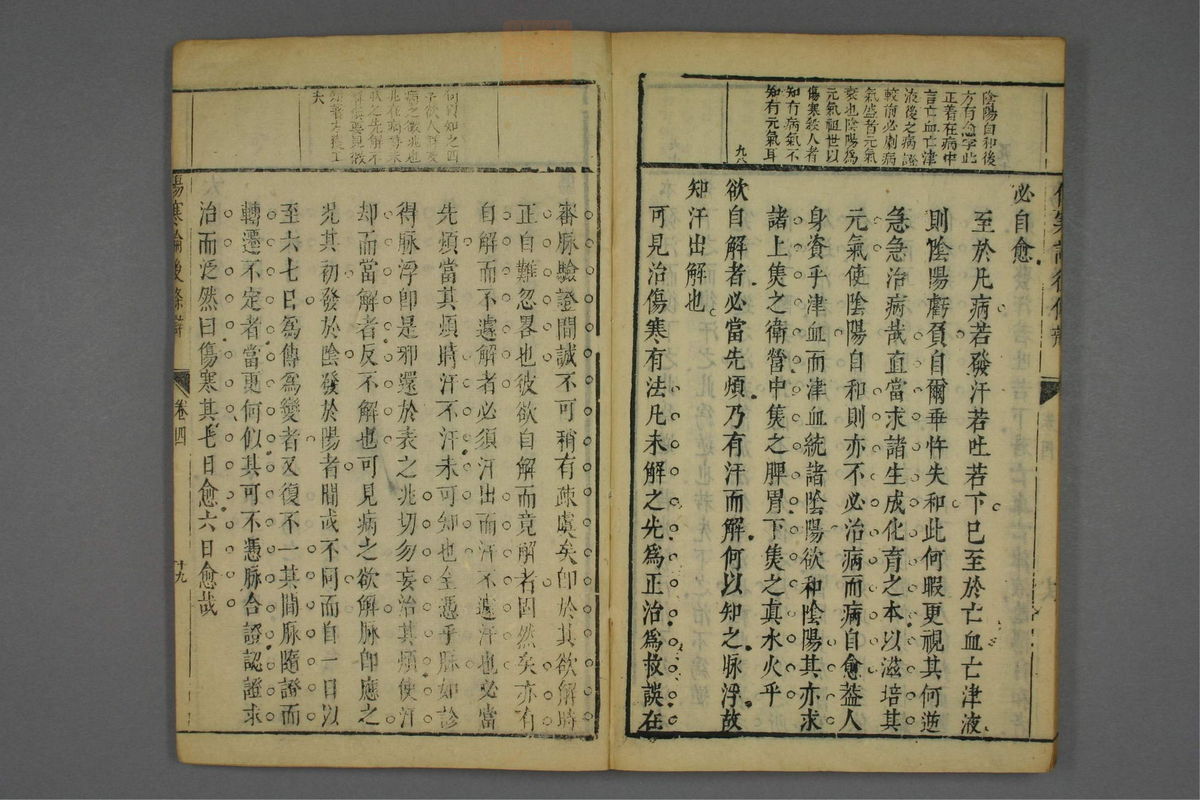 陰陽自和後
方有愈字此
正著在病中
言亡血亡津
液後之病證
較前必劇病
氣盛者元氣
衰也陰陽為
元氣祖世以
傷寒殺人者
知有病氣不
知有元氣耳
必自愈
至於凡病若發汗若吐若下已至於亡血亡津液
則陰陽虧負自爾乖忤失和此何暇更視其何逆
急急治病哉直當求諸生成化育之本以滋培其
元氣使陰陽自和則亦不必治病而病自愈葢人
身資乎津血而津血統諸陰陽欲和陰陽其亦求
諸上焦之衛營中焦之脾胃下焦之真水火乎
欲自解者必當先煩乃有汗而解何以知之脉浮故
知汗出解也
可見治傷寒有法凡未解之先為正治為救誤在
審脉驗證間誠不可稍有疎虞矣即於其欲解時
正自難忽畧也彼欲自解而竟解者固然矣亦有
自解而不遽解者必須汗出而汗不遽汗也必當
先煩當其煩時汗不汗未可知也全憑乎脉如診
得脉浮即是邪還於表之兆切勿妄治其煩使汗
却而當解者反不解也可見病之欲解脉即應之
况其初發於陰發於陽者間或不同而自一日以
至六七日為傳為變者又復不一其間脉隨證而
轉遷不定者當更何似其可不憑脉合證認證求
治而泛然曰傷寒其七日愈六日愈哉
傷寒論後條辯
卷四
十九